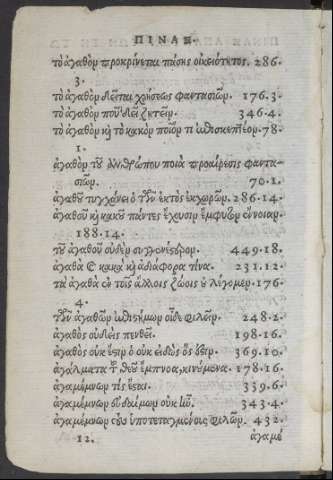 ΠΙΝΑΞ.
τὸ ἀγαθὸν προκρίνεται πάσης οἰκειότητος. 286.
3.
τὸ ἀγαθὸν δεῖται χρήσεως φαντασιῶν. 176.3.
τὸ ἀγαθὸν ποῦ δεῖ ζητεῖν. 346.4.
τὸ ἀγαθὸν κὴ τὸ κακὸν ποῖόν τι ἐπισκεπτέον. 78.
1.
ἀγαθὸν τοῦ ἀνθρώπου ποιὰ προαίρεσις φαντα-
σιῶν. 70.1.
ἀγαθοῦ τυγχάνει ὁ τῶν ἐκτὸς ἐκχωρῶν. 286.14.
ἀγαθοῦ κὴ κακοῦ πάντες ἔχουσιν ἔμφυτον ἔννοιαν.
188.14.
τοῦ ἀγαθοῦ οὐδὲν συγγενέστερον. 449.18.
ἀγαθὰ κὴ κακὰ κὴ ἀδιάφορα τίνα. 231.12.
τὰ ἀγαθὰ ἐν τοῖς ἄλλοις ζώοις οὐ λέγομεν. 176.
4.
τῶν ἀγαθῶν ἐπιστήμων οἶδε φιλεῖν. 248.2.
ἀγαθὸς οὐδεὶς πενθεῖ. 198.16.
ἀγαθὸς οὐκ ἔστιν ὁ οὐκ εἰδὼς ὅς ἐστιν. 369.10.
ἀγάλματα τοῦ θεοῦ ἔμπνοα, κινούμενα. 178.16.
ἀγαμέμνων τίς ἔσται. 339.6.
ἀγαμέμνων εὐδαίμων οὐκ ἦν. 343.4.
ἀγαμέμνων τοὺς ὑποτεταγμένοις φιλῶν. 432.
12. ἀγαμέ